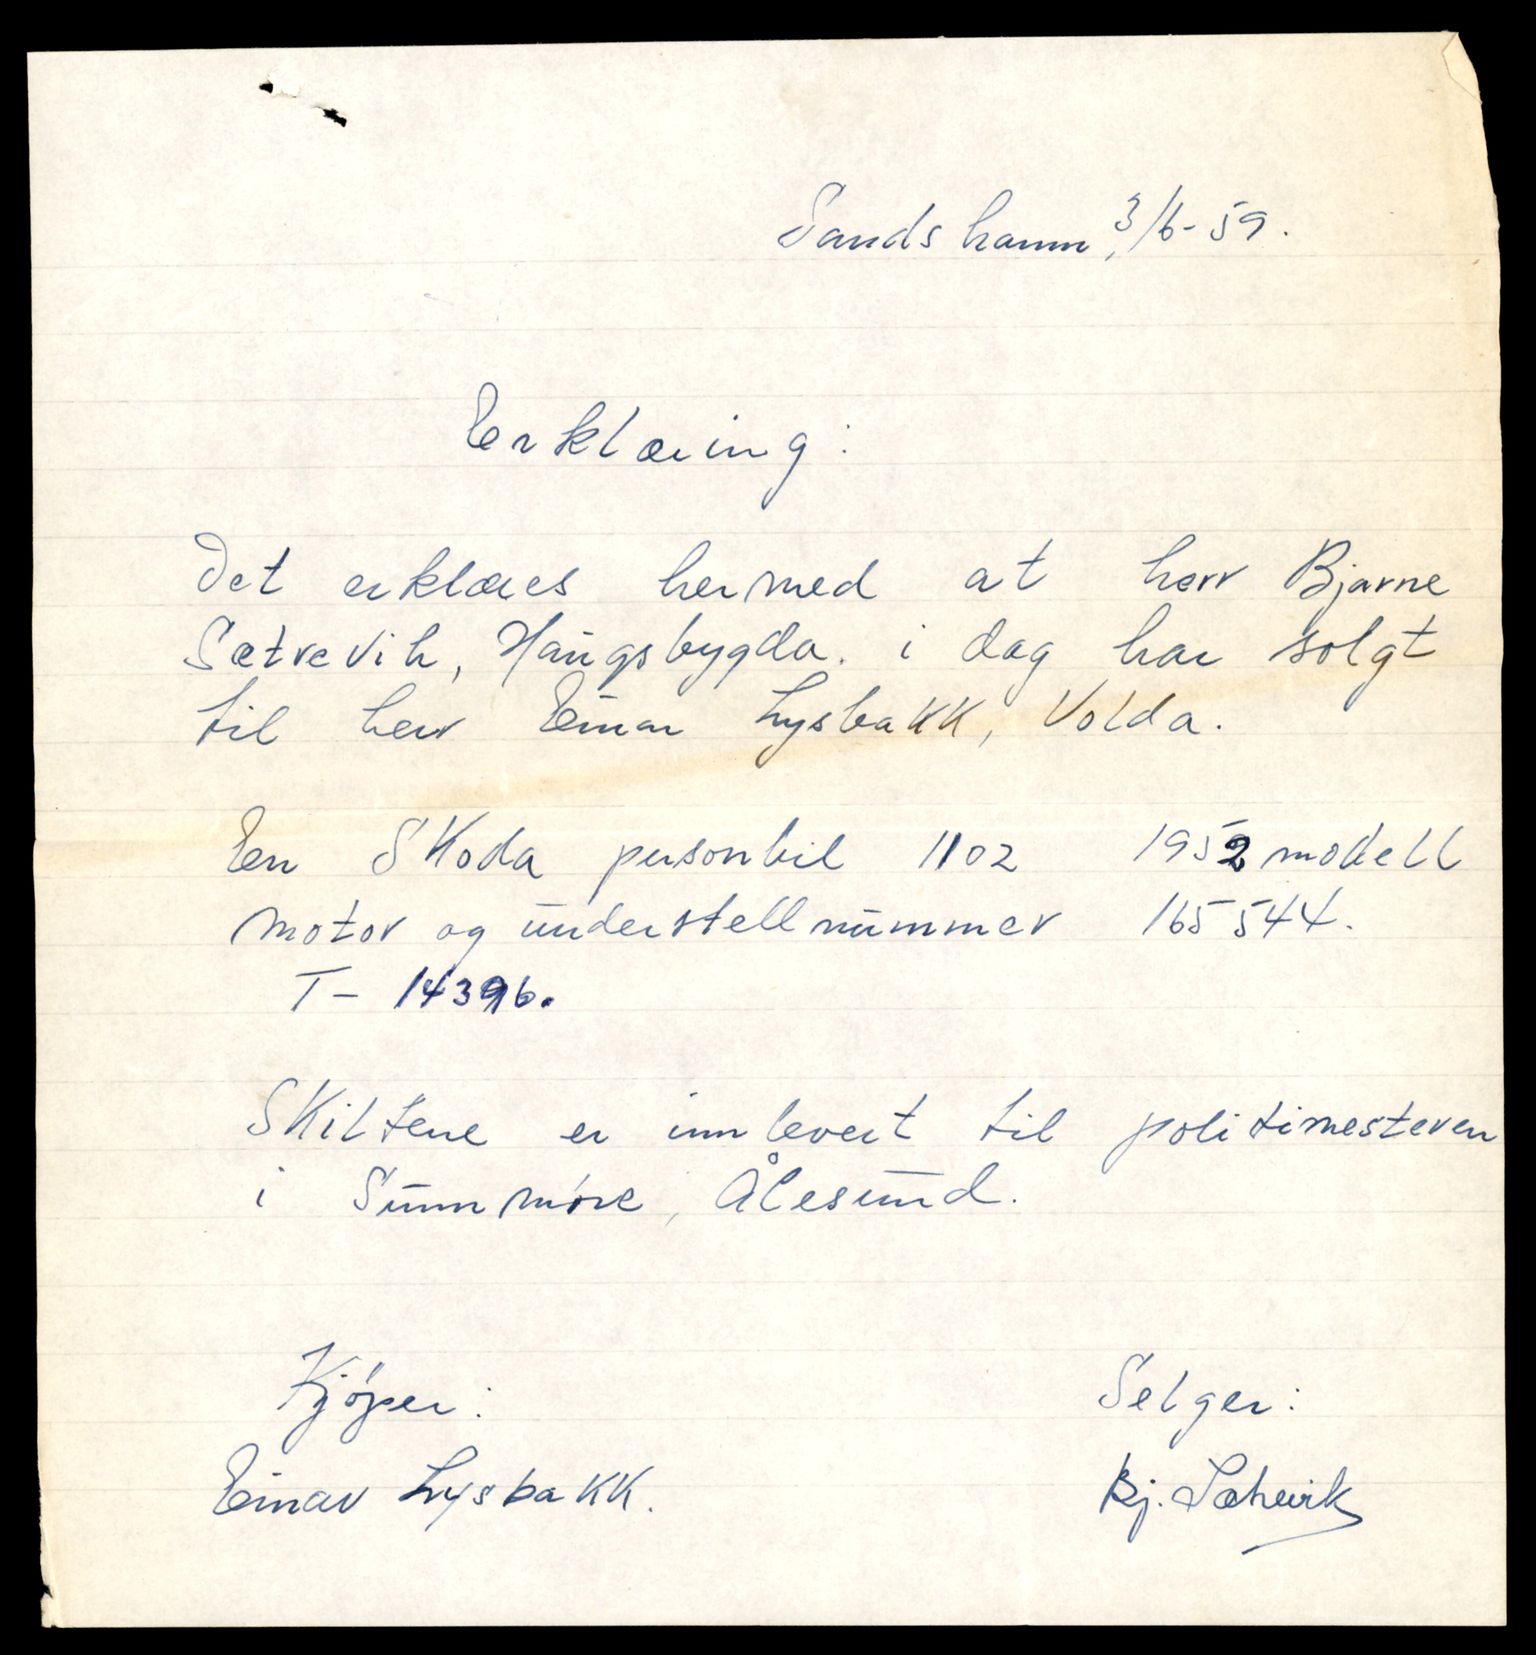 Sandshamn, 3/6-59.
Erklæring:
Det erklæres hermed at herr Bjarne
Sætrevik, Haugsbygda. i dag har solgt
til herr Einar Lysbakk, Volda.
En Skoda personbil 1102 1952 modell
motor og understellnummer 165544.
T- 14396.
Skiltene er innlevert til politimesteren
i Sunnmöre, Ålesund.
Kjöper: Selger:
Einar Lysbakk. Bj. Sætrevik